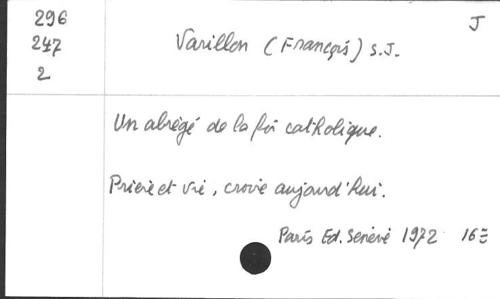 296
J
247
Varillon (François) S.J.
2
Un abrégé de la foi catholique.
Prière et vie, croire aujourd'hui.
Paris Ed. Senevé 1972 16